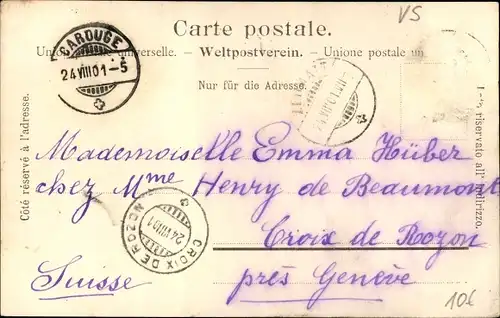 VS
Carte postale.
Union postale universelle. - Weltpostverein. - Unione postale un
Nur für die Adresse.
CAROUGE
24 VIII 01 - 5
Côté réservé à l'adresse.
Lato riservato all' indirizzo.
Mademoiselle Emma Hüber
chez Mme Henry de Beaumont
Croix de Rozon
près Genève
Suisse
CROIX DE ROZON
24 VIII 01
10€